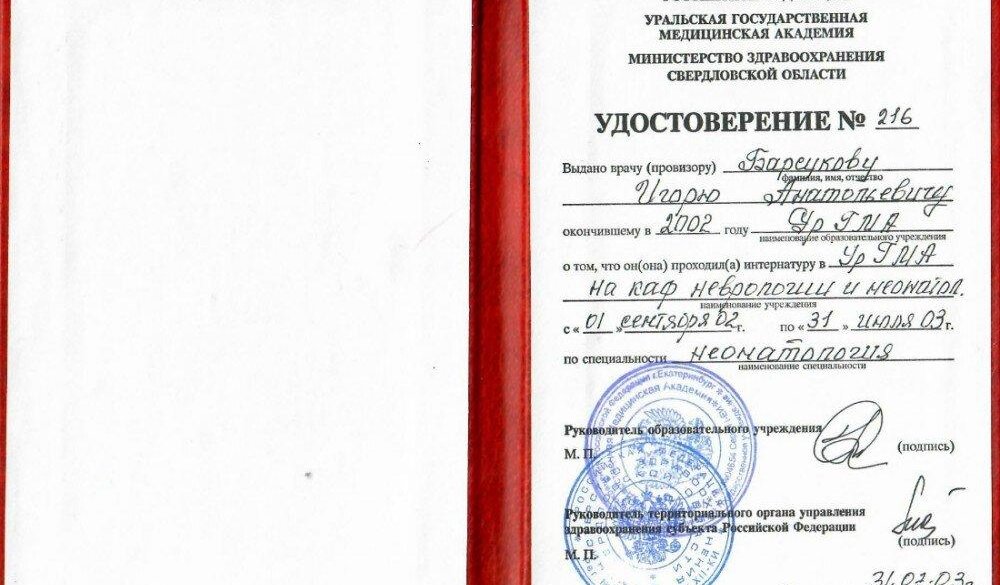 УРАЛЬСКАЯ ГОСУДАРСТВЕННАЯ
МЕДИЦИНСКАЯ АКАДЕМИЯ
МИНИСТЕРСТВО ЗДРАВООХРАНЕНИЯ
СВЕРДЛОВСКОЙ ОБЛАСТИ
УДОСТОВЕРЕНИЕ № 216
Выдано врачу (провизору) Барсукову
фамилия, имя, отчество
Игорю Анатольевичу
окончившему в 2002 году УрГМА
наименование образовательного учреждения
о том, что он(она) проходил(а) интернатуру в УрГМА
на каф неврологии и неонатол.
наименование учреждения
с « 01 » сентября 02 г. по « 31 » июля 03 г.
по специальности неонатология
наименование специальности
Руководитель образовательного учреждения
М. П.
(подпись)
Руководитель территориального органа управления
здравоохранения субъекта Российской Федерации
М. П.
(подпись)
31.07.03г